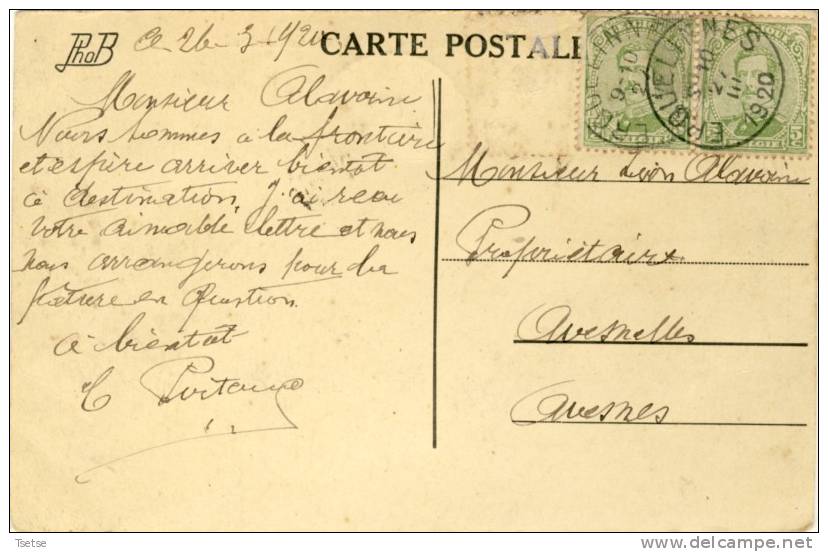 PhoB
Ce 26-3-1920
CARTE POSTALE
ERQUELINNES
9-10
ERQUELINNES
10
III
1920
Monsieur Alavoine
Nous sommes à la frontière
et espère arriver bientôt
à destination, J'ai reçu
votre aimable lettre et nous
nous arrangerons pour la
pâture en question
à bientot
Monsieur Léon Alavoine
Propriétaire
Avesnelles
Avesnes
Tsetse
delcampe.net